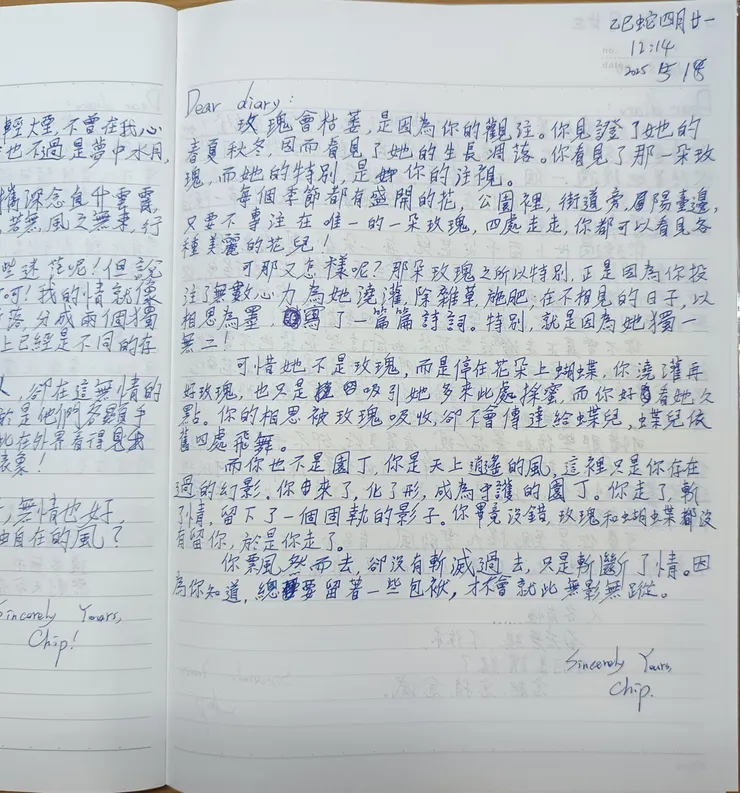 輕煙,不曾在我心
也不過是夢中水月,
深念直升雲霄,
若無,風之無束,行
些迷茫呢!但說
呵!我的情就像
落,分成兩個獨
上已經是不同的存
人,卻在這無情的
於是他們各顯手
此在外界看得見我
表象!
;無情也好,
由自在的風?
Sincerely Yours,
Chip!
乙巳蛇四月廿一
12:14
2025 5 18
Dear diary:
玫瑰會枯萎,是因為你的觀注。你見證了她的
春夏秋冬,因而看見了她的生長凋落。你看見了那一朵玫
瑰,而她的特別,是你的注視。
每個季節都有盛開的花,公園裡,街道旁,眉陽臺邊,
只要不專注在唯一的一朵玫瑰,四處走走,你都可以看見各
種美麗的花兒!
可那又怎樣呢?那朵玫瑰之所以特別,正是因為你投
注了無數心力為她澆灌,除雜草,施肥;在不相見的日子,以
相思為墨,寫了一篇篇詩詞。特別,就是因為她獨一
無二!
可惜她不是玫瑰,而是停在花朵上蝴蝶,你澆灌再
好玫瑰,也只是吸引她多來此處採蜜,而你好看她久
點。你的相思被玫瑰吸收,卻不會傳達給蝶兒,蝶兒依
舊四處飛舞。
而你也不是園丁,你是天上逍遙的風,這裡只是你存在
過的幻影。你由來了,化了形,成為守護的園丁。你走了,斬
了情,留下了一個固執的影子。你畢竟沒錯,玫瑰和蝴蝶都沒
有留你,於是你走了。
你葉風然而去,卻沒有斬滅過去,只是斬斷了情。因
為你知道,總要留著一些包袱,才不會就此無影無蹤。
Sincerely Yours,
Chip.